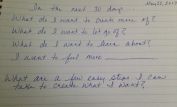 May 22, 2013
In the next 30 days...
What do I want to create more of?
What do I want to let go of?
What do I want to learn about?
I want to feel more
What are a few easy steps I can
take to create what I want?